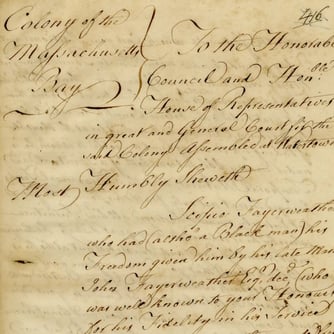 416
Colony of the
Massachusetts
Bay
To the Honorable
Council and Honble.
House of Representatives
in great and General Court for the
said Colony Assembled at Watertown
Most Humbly Sheweth
Scipio Fayerweather
who had (altho' a Black man) his
Freedom given him by his late Mas
John Fayerweather Esqr. decd. (who
was well known to your Honours
for his Fidelity in his Service